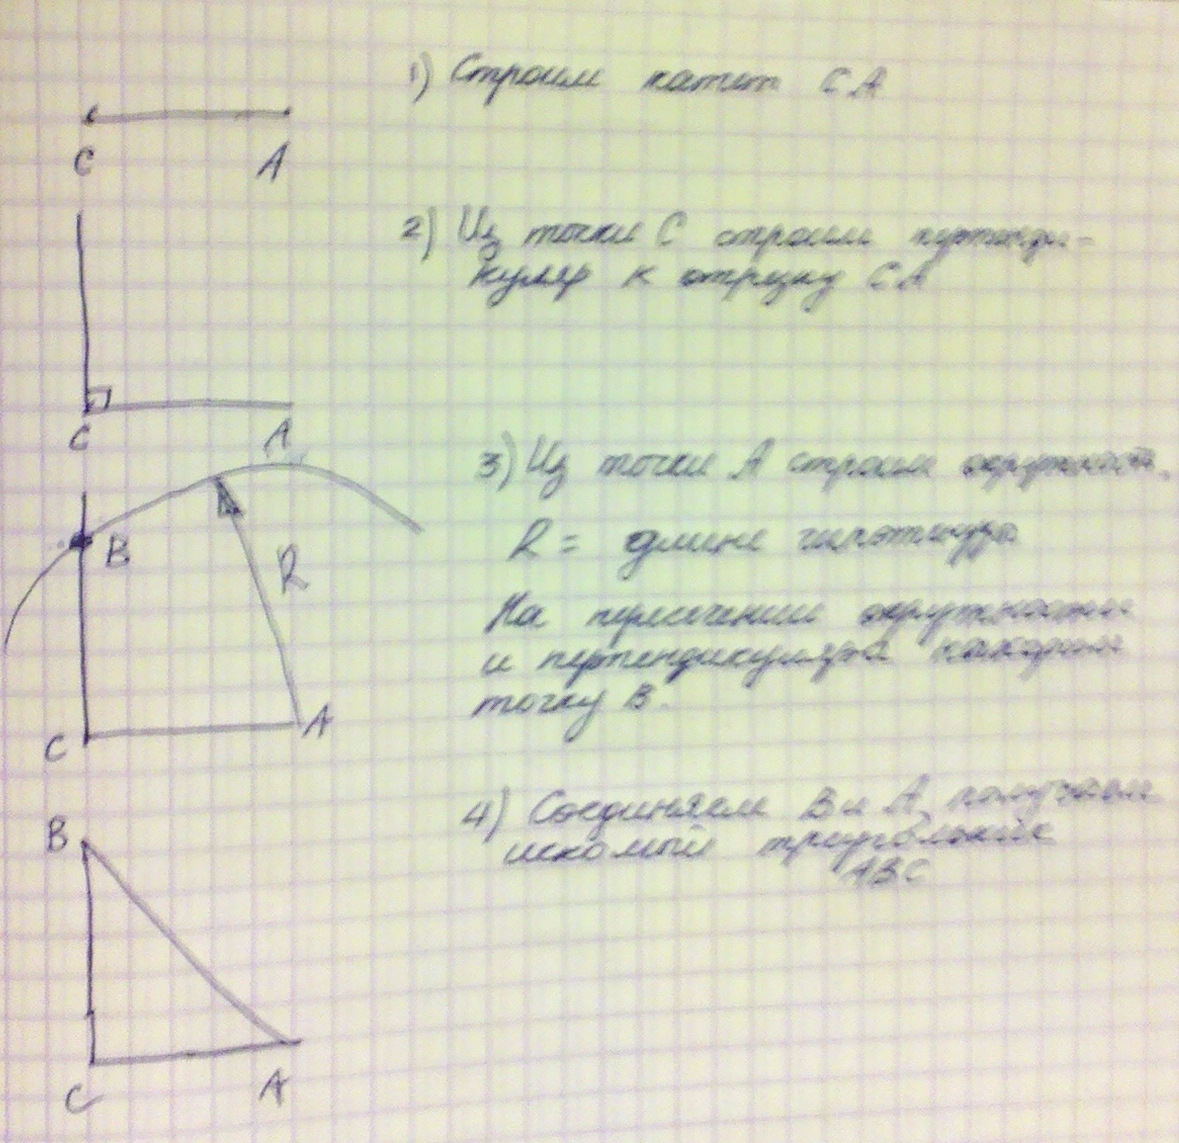 1) Строим катет CA
C A
2) Из точки C строим перпенди-
куляр к отрезку CA
C A
3) Из точки A строим окружность.
R = длине гипотенузы
На пересечении окружности
и перпендикуляра находим
точку B.
B R
C A
4) Соединяем B и A, получаем
искомый треугольник
ABC
B
C A